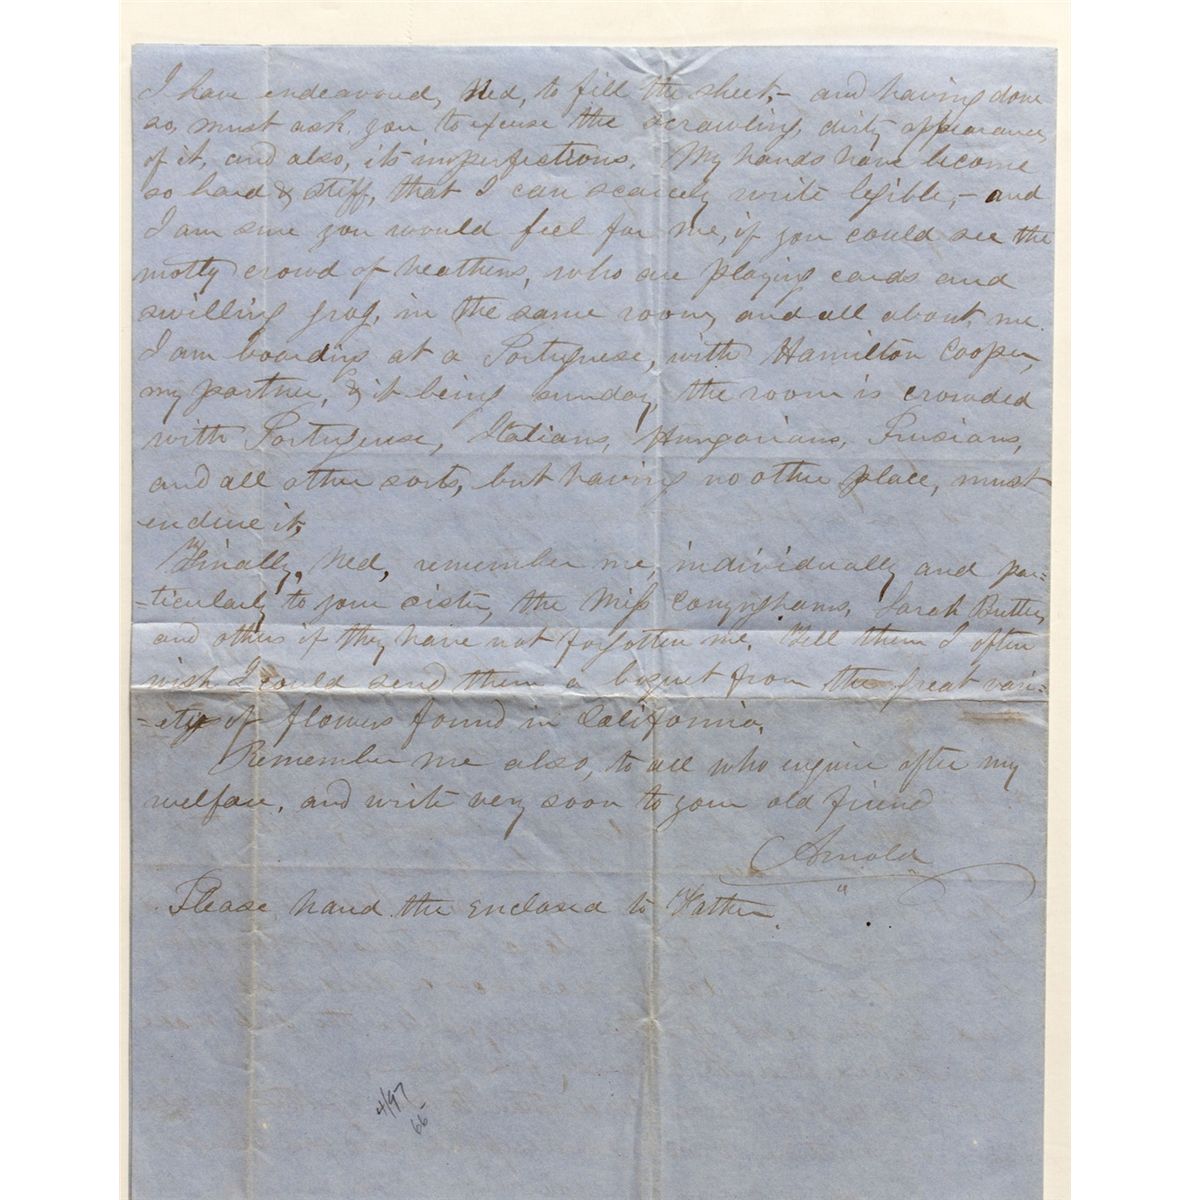 I have endeavoured, Ned, to fill the sheet,- and having done
so, must ask you to excuse the scrawling, dirty appearance
of it, and also, its imperfections. My hands have become
so hard & stiff, that I can scarcely write legible,- and
I am sure you would feel for me, if you could see the
motly crowd of heathens, who are playing cards and
swilling grog, in the same room, and all about me.
I am boarding at a Portugese, with Hamilton Cooper,
my partner, & it being sunday, the room is crowded
with Portugese, Italians, Hungarians, Prusians,
and all other sorts, but having no other place, must
endure it,
Finally, Ned, remember me, individually and par=
=ticularly to your sister, the Miss Conynghams, Sarah Butler,
and others if they have not forgotten me. Tell them I often
wish I could send them a boquet from the great vari=
=ety of flowers found in California.
Remember me also, to all who enquire after my
welfare, and write very soon to your old friend
Arnold
Please hand the enclosed to Father.
4/97
66-